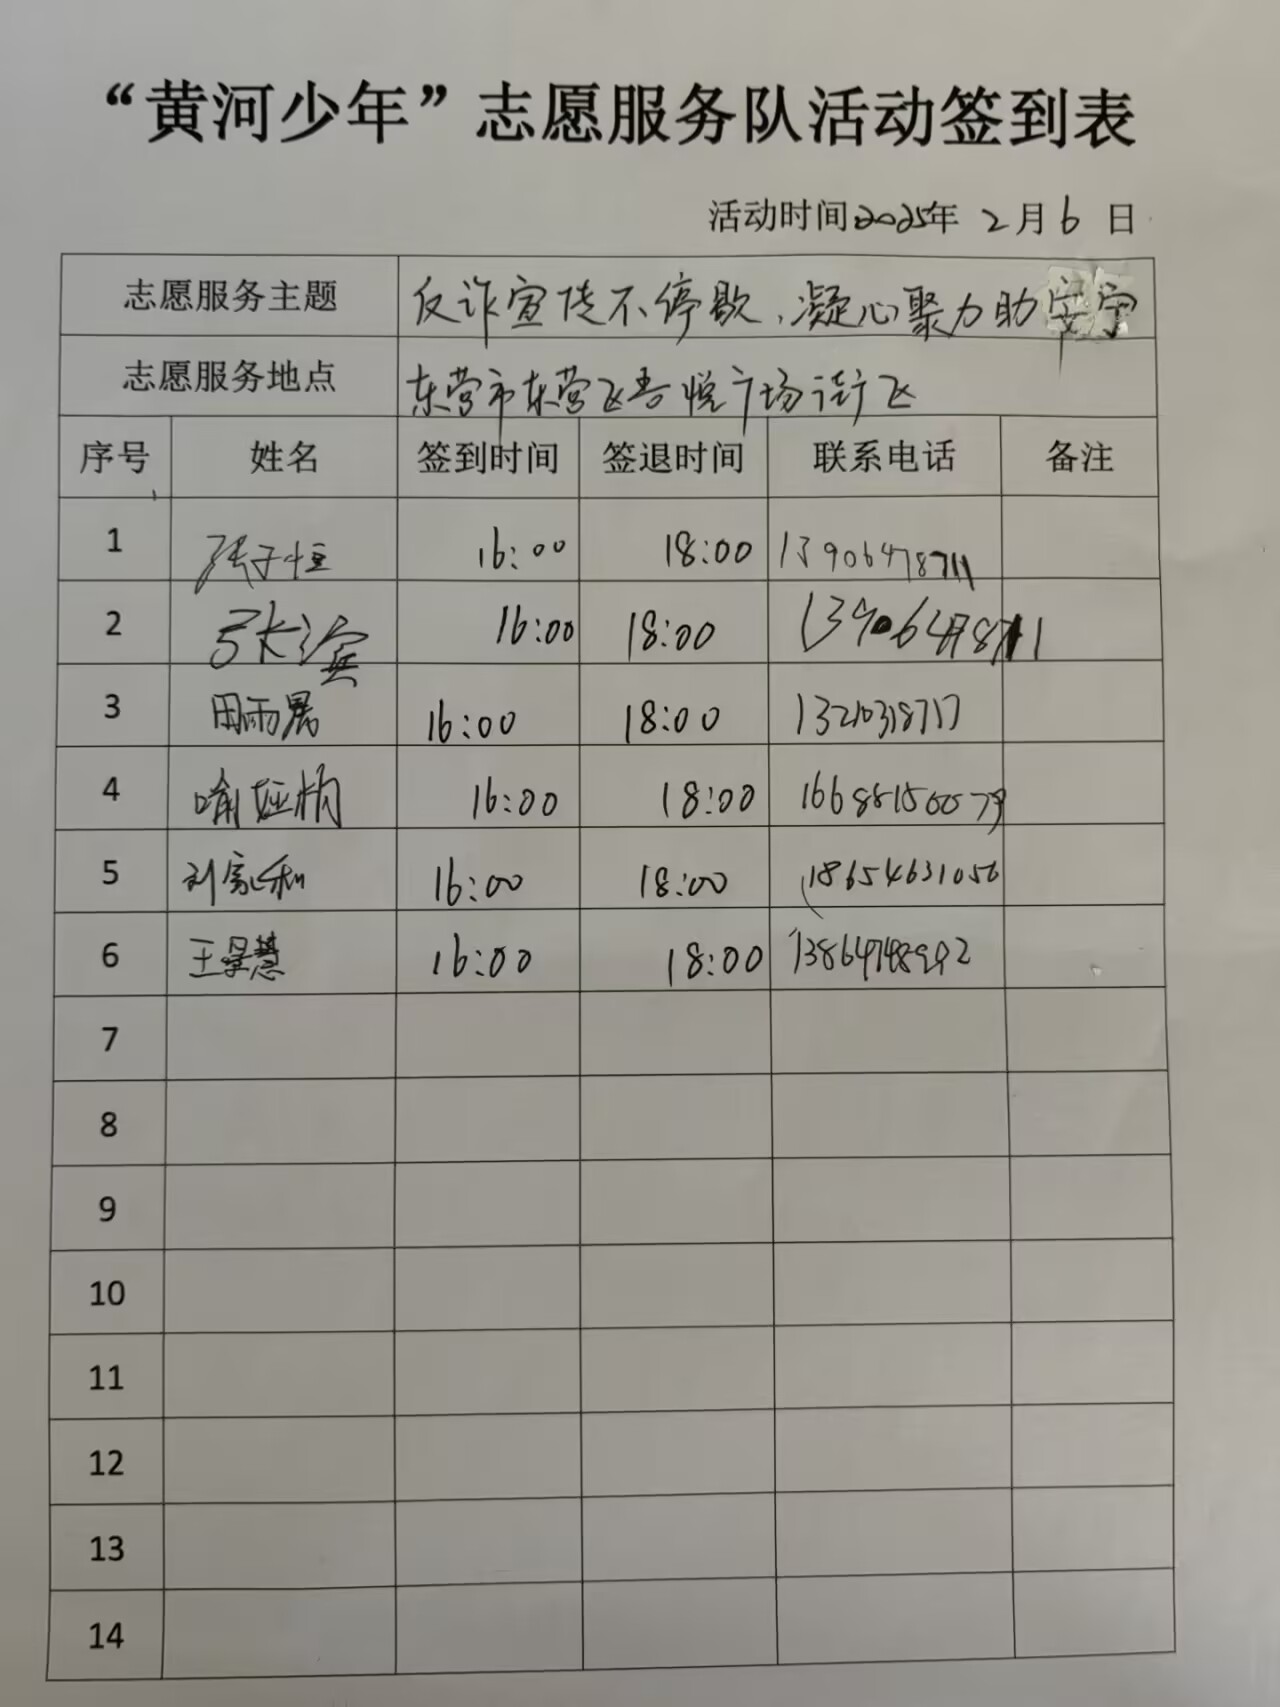 “黄河少年”志愿服务队活动签到表
活动时间2025年 2月6日
志愿服务主题 反诈宣传不停歇、凝心聚力助安宁
志愿服务地点 东营市东营区吾悦广场街区
序号 姓名 签到时间 签退时间 联系电话 备注
1 张子恒 16:00 18:00 13906478711
2 张 16:00 18:00 13906478711
3 田雨 16:00 18:00 13210318717
4 喻 16:00 18:00 16688150079
5 刘家和 16:00 18:00 18654631056
6 王星慧 16:00 18:00
7
8
9
10
11
12
13
14